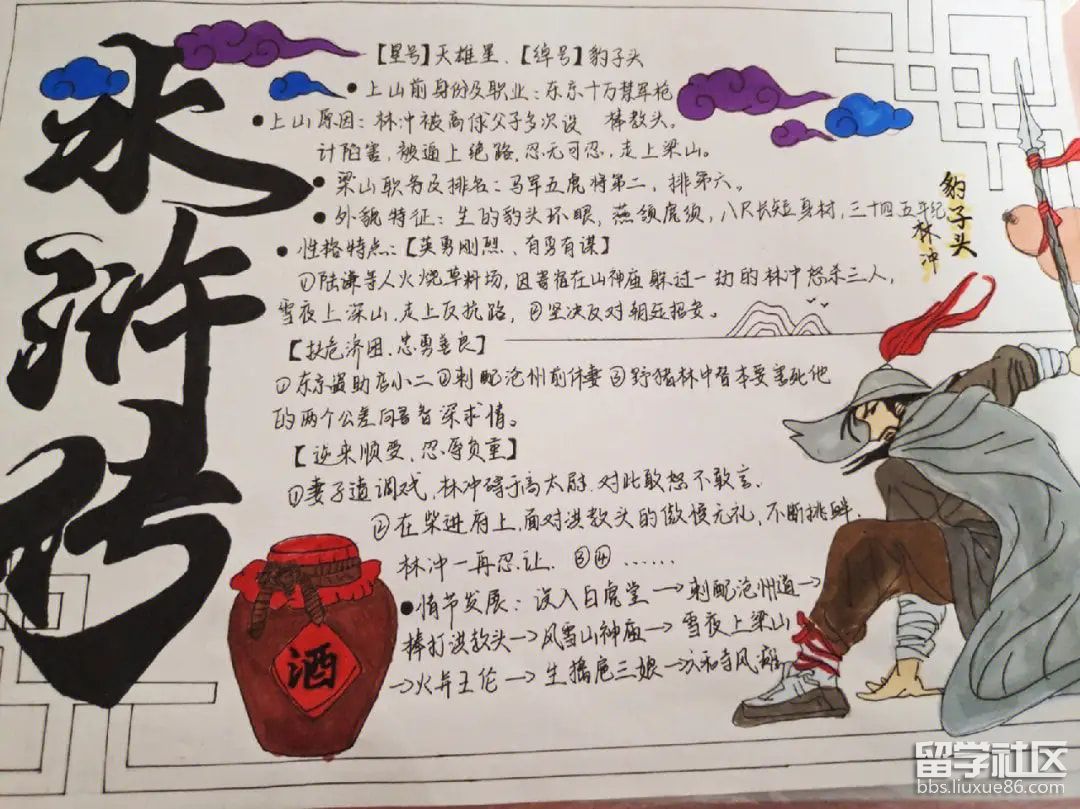 水浒传
【星号】天雄星、【绰号】豹子头
●上山前身份及职业：东京十万禁军枪
棒教头。
●上山原因：林冲被高俅父子多次设
计陷害，被逼上绝路，忍无可忍，走上梁山。
●梁山职务及排名：马军五虎将第二，排第六。
●外貌特征：生的豹头环眼，燕颔虎须，八尺长短身材，三十四五年纪
●性格特点：【英勇刚烈、有勇有谋】
①陆谦等人火烧草料场，因寄宿在山神庙躲过一劫的林冲怒杀三人，
雪夜上深山，走上反抗路，②坚决反对朝廷招安。
【扶危济困，忠勇善良】
①东京资助店小二②刺配沧州前休妻③野猪林中替本要害死他
的两个公差向鲁智深求情。
【逆来顺受，忍辱负重】
①妻子遭调戏，林冲碍于高太尉.对此敢怒不敢言.
②在柴进府上，面对洪教头的傲慢无礼，不断挑衅.
林冲一再忍让. ③④……
●情节发展：误入白虎堂→刺配沧州道→
棒打洪教头→风雪山神庙→雪夜上梁山
→火并王伦→生擒扈三娘→六和寺风瘫
豹子头
林冲
酒
留学社区
bbs.liuxue86.com